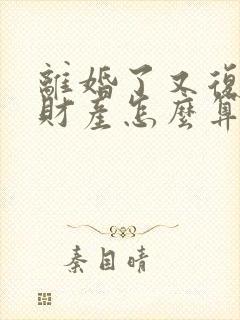 離婚了又復
財產怎麼算
秦目晴